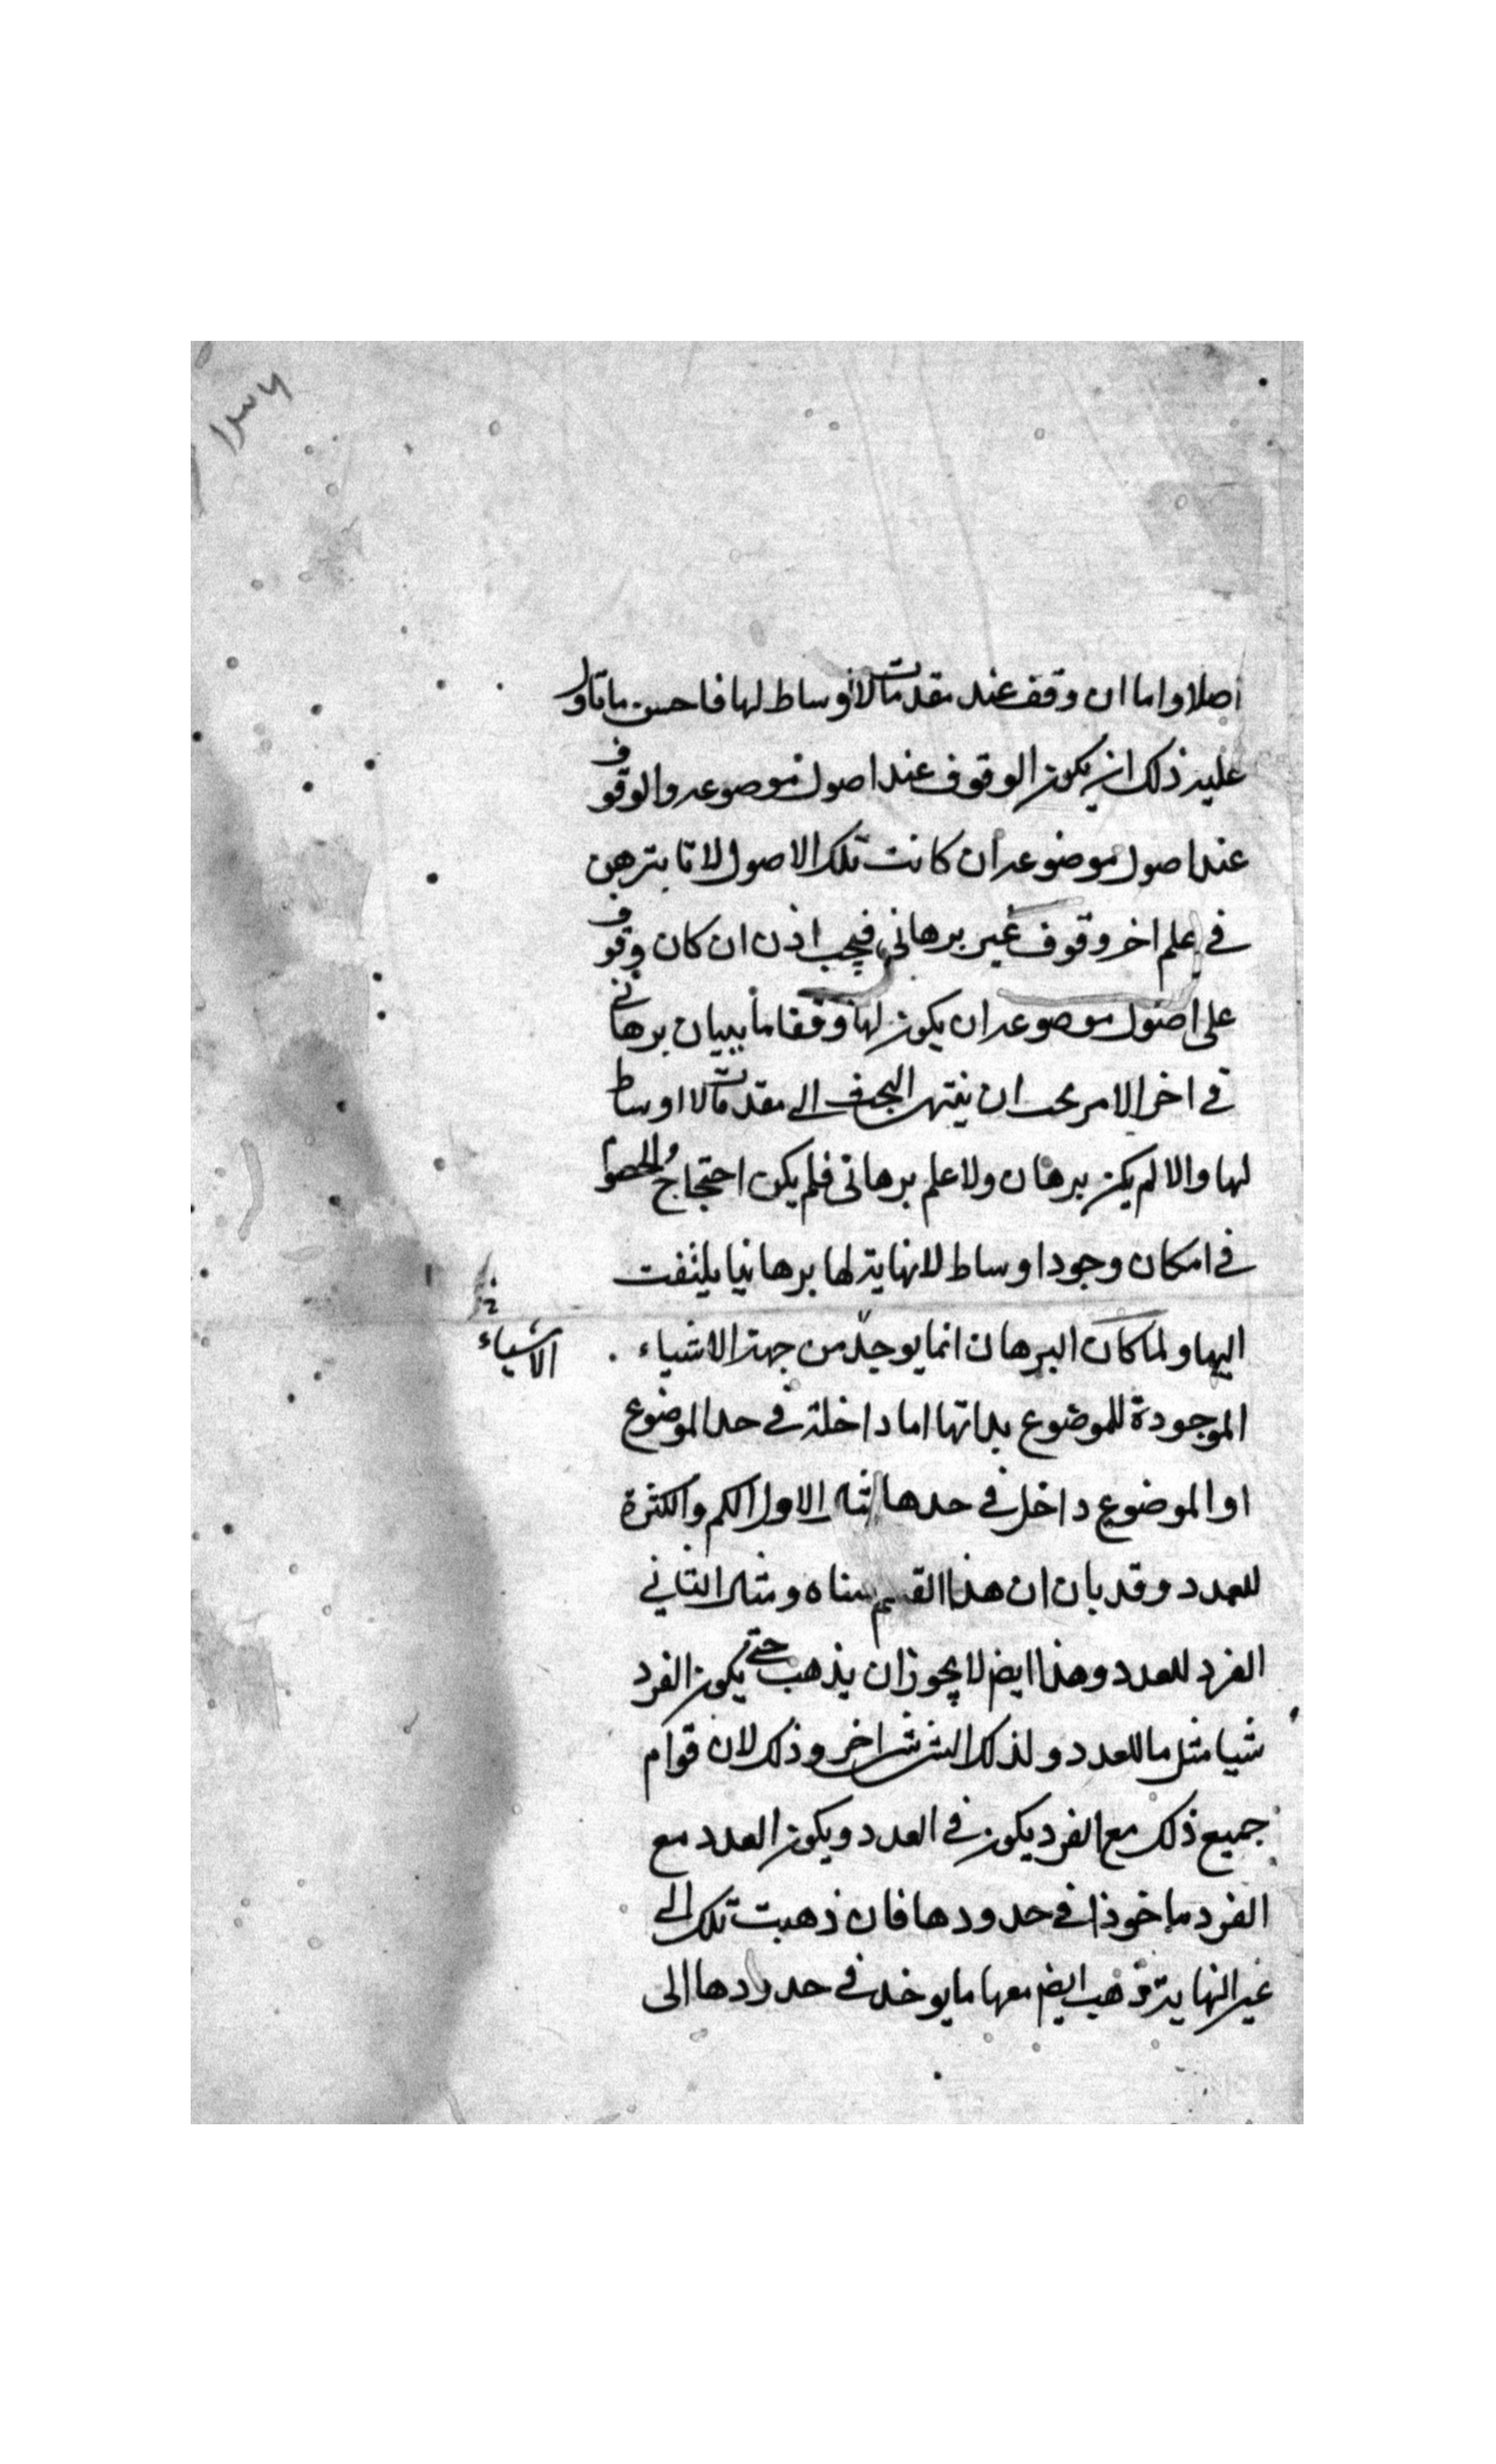 ١٣٦
اصلا واما ان وقف عند مقدمات لا اوساط لها فاحسن ما تاول
عليه ذلك ان يكون الوقوف عند اصول موصوعه والوقوف
عند اصول موضوعه ان كانت تلك الاصول لا تا بترهن
في علم اخر وقوف غير برهاني فيجب اذن ان كان وقوف
على اصول موصوعه ان يكون لها وقفا ما ببيان برهاني
في اخر الامر يجب ان ينتهي البحث الى مقدمات لا اوساط
لها والا لم يكن برهان ولا علم برهاني فلم يكن احتجاج الخصوم
في امكان وجود اوساط لا نهاية لها برهانيا يلتفت
اليها ولما كان البرهان انما يوجد من جهة الاشياء
الاشياء
الموجودة للموضوع بذاتها اما داخلة في حد الموضوع
او الموضوع داخل في حدها مثال الاول الكم والكثرة
للعدد وقد بان ان هذا القسم متناه ومثال الثاني
الفرد للعدد وهذا ايضا لا يجوز ان يذهب حتى يكون الفرد
شيا مثل ما للعدد ولذلك الشي شي اخر وذلك لان قوام
جميع ذلك مع الفرد يكون في العدد ويكون العدد مع
الفرد ماخوذا في حدودها فان ذهبت تلك الى
غير النهاية ذهب ايضا معها ما يوخذ في حدودها الى